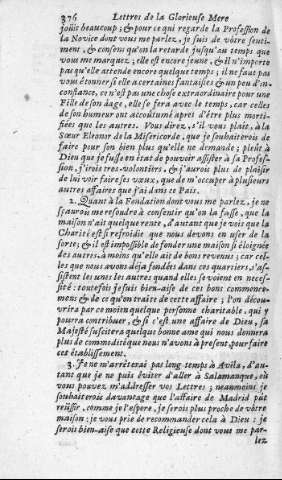 376 Lettres de la Glorieuse Mere
joüis beaucoup; & pour ce qui regarde la Profession de
la Novice dont vous me parlez, je suis de vôtre senti-
ment, & consens qu'on la retarde jusqu'au temps que
vous me marquez; elle est encore jeune, & il n'importe
pas qu'elle attende encore quelque temps; il ne faut pas
vous étonner si elle a certaines fantaisies & un peu d'in-
constance, ce n'est pas une chose extraordinaire pour une
Fille de son âge, elle se fera avec le temps, car celles
de son humeur ont accoûtumé aprés d'être plus morti-
fiées que les autres. Vous direz, s'il vous plaît, à la
Sœur Eleonor de la Misericorde, que je souhaiterois de
faire pour son bien plus qu'elle ne demande; plût à
Dieu que je fusse en état de pouvoir assister à sa Profes-
sion, j'irois tres-volontiers, & j'aurois plus de plaisir
de lui voir faire ses vœux, que de m'occuper à plusieurs
autres affaires que j'ai dans ce Païs.
2. Quant à la Fondation dont vous me parlez, je ne
sçaurois me resoudre à consentir qu'on la fasse, que la
maison n'ait quelque rente, d'autant que je vois que la
Charité est si refroidie que nous devons en user de la
sorte; & il est impossible de fonder une maison si éloignée
des autres, à moins qu'elle ait de bons revenus; car cel-
les que nous avons déja fondées dans ces quartiers, s'as-
sistent les unes les autres quand elles se voient en neces-
sité: toutefois je suis bien-aise de ces bons commence-
mens & de ce qu'on traite de cette affaire; l'on décou-
vrira par ce moien quelque personne charitable, qui y
pourra contribuer, & si c'est une affaire de Dieu, sa
Majesté suscitera quelque bonne ame qui nous donnera
plus de commodité que nous n'avons à present, pour faire
cet établissement.
3. Je ne m'arrêterai pas long-temps à Avila, d'au-
tant que je ne puis éviter d'aller à Salamanque, où
vous pouvez m'addresser vos Lettres; neanmoins je
souhaiterois davantage que l'affaire de Madrid pût
reüssir, comme je l'espere, je serois plus proche de vôtre
maison; je vous prie de recommander cela à Dieu: je
serois bien-aise que cette Religieuse dont vous me par-
lez